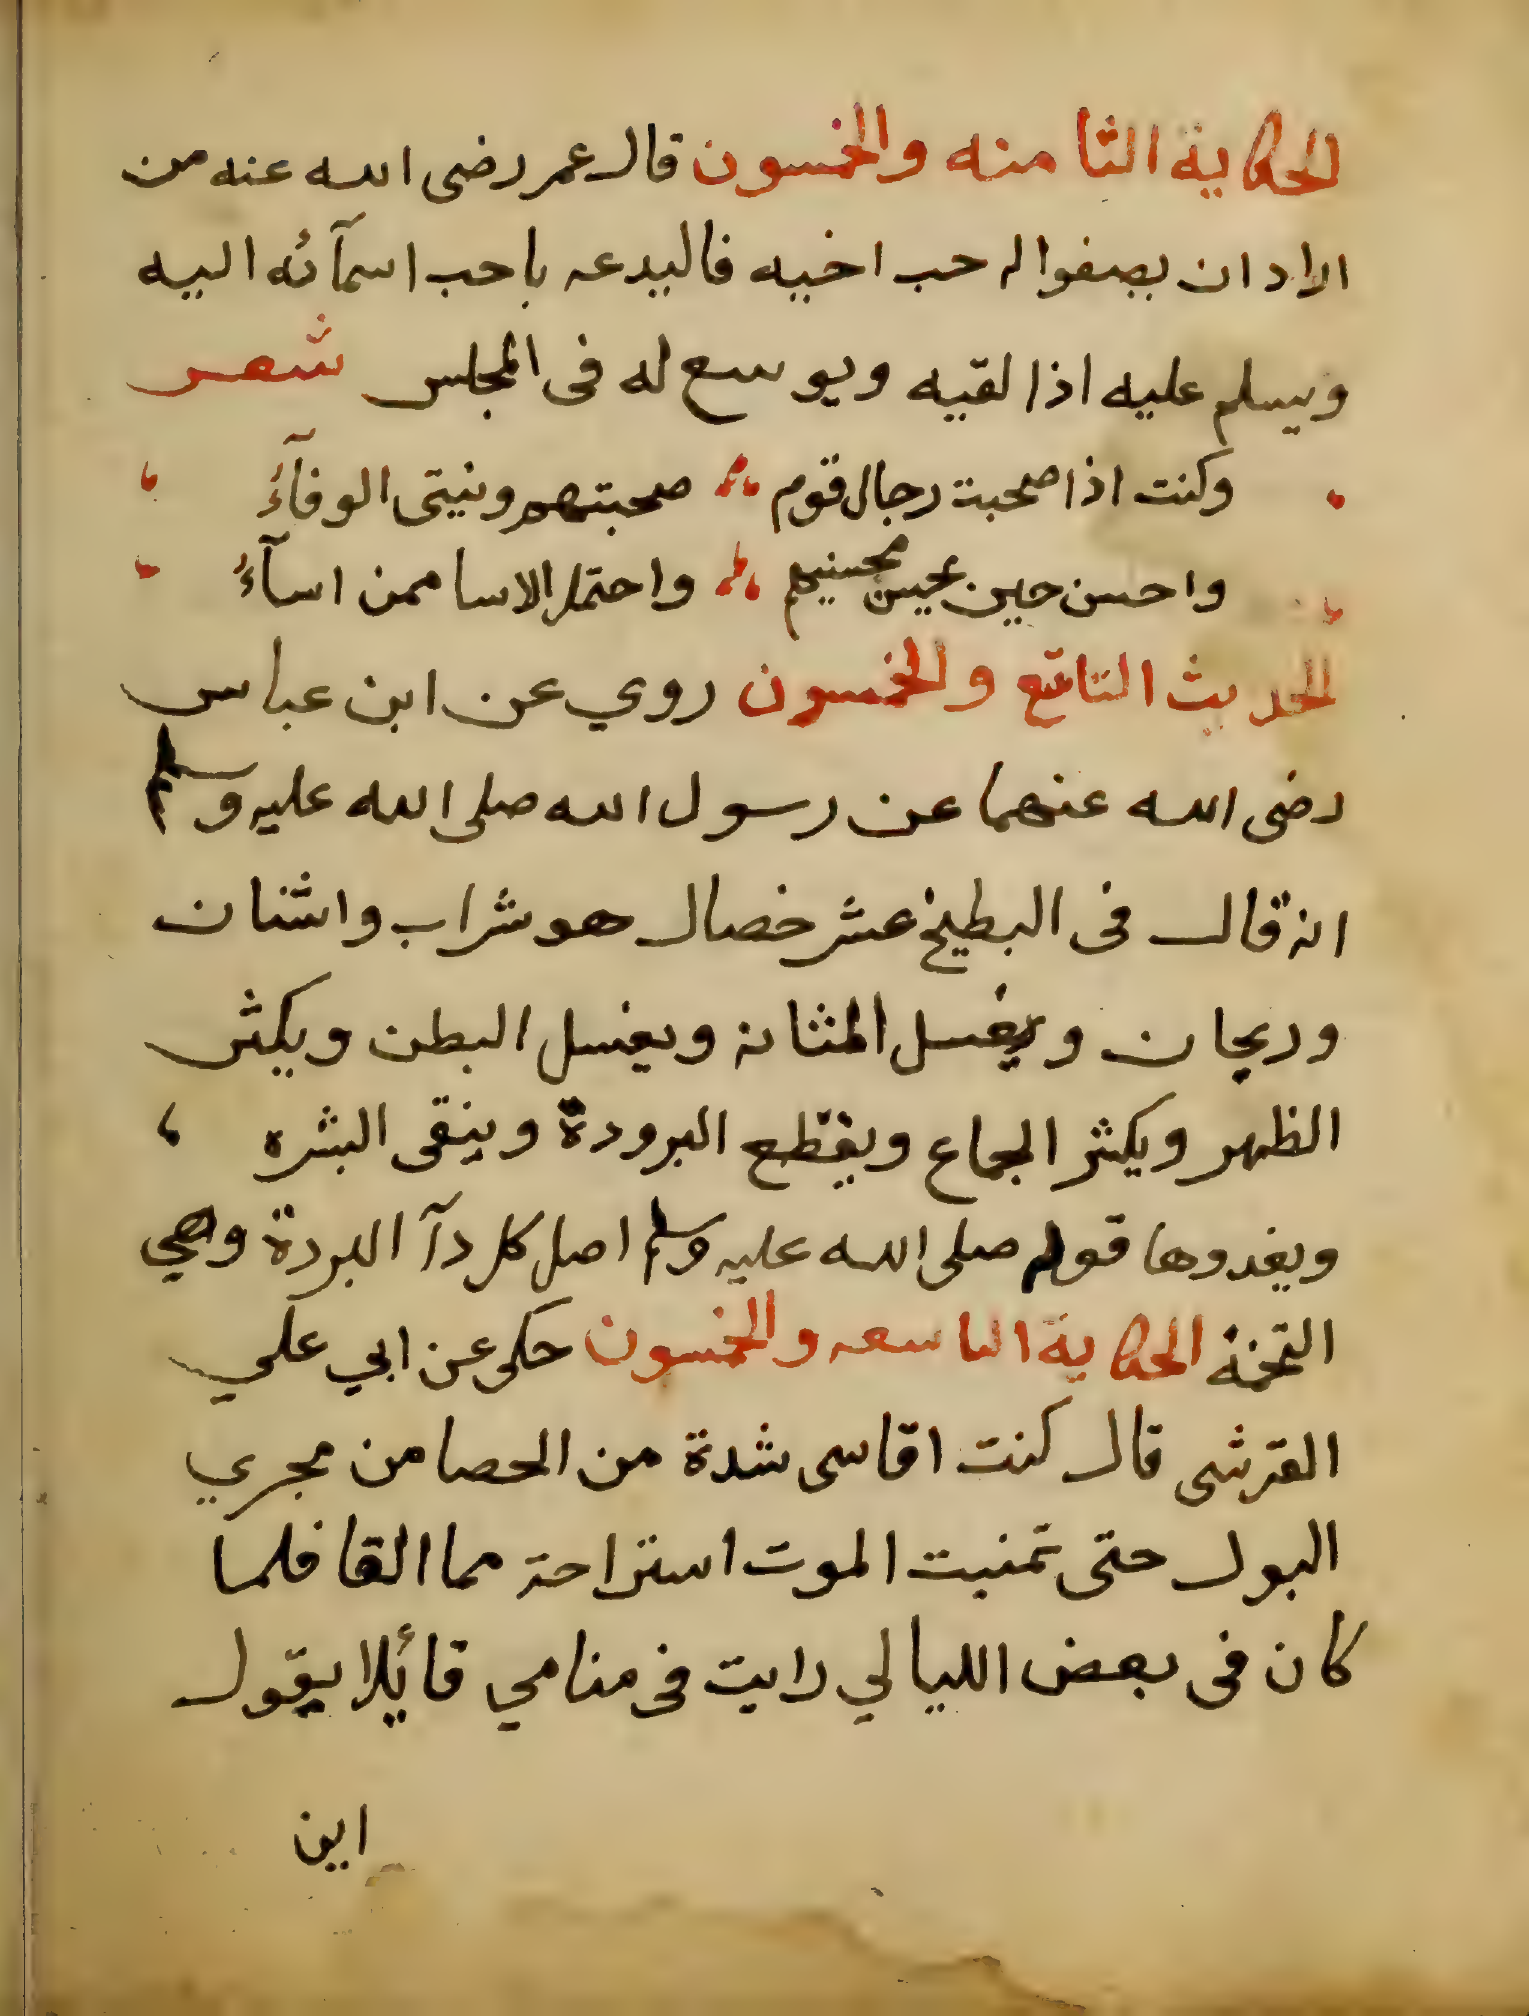 الحكاية الثامنه والخمسون قال عمر رضى الله عنه من
اراد ان يصفوا له حب اخيه فاليدعه باحب اسمآئه اليه
ويسلم عليه اذا لقيه ويوسع له فى المجلس شعر
وكنت اذا صحبت رجال قوم صحبتهم ونيتى الوفآءُ
واحسن حين يحسن محسنيهم واحتمل الاسا ممن اسآءُ
الحديث التاسع والخمسون روي عن ابن عباس
رضى الله عنهما عن رسول الله صلى الله عليه وسلم
انه قال فى البطيخ عشر خصال هو شراب واشنان
وريحان ويغسل المثانه ويغسل البطن ويكثر
الظهر ويكثر الجماع ويقطع البرودة وينقى البشره
ويغدوها قوله صلى الله عليه وسلم اصل كل دآ البردة وهي
التخمة الحكاية التاسعه والخمسون حكى عن ابي علي
القرشى قال كنت اقاسى شدة من الحصا من مجري
البول حتى تمنيت الموت استراحة مما القا فلما
كان فى بعض الليالي رايت فى منامي قائلا يقول
اين